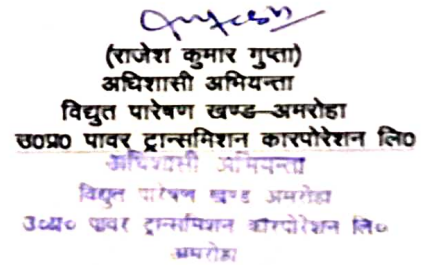 (राजेश कुमार गुप्ता)
अधिशासी अभियन्ता
विद्युत पारेषण खण्ड–अमरोहा
उ०प्र० पावर ट्रान्समिशन कारपोरेशन लि०
अधिशासी अभियन्ता
विद्युत पारेषण खण्ड अमरोहा
उ०प्र० पावर ट्रान्समिशन कारपोरेशन लि०
अमरोहा